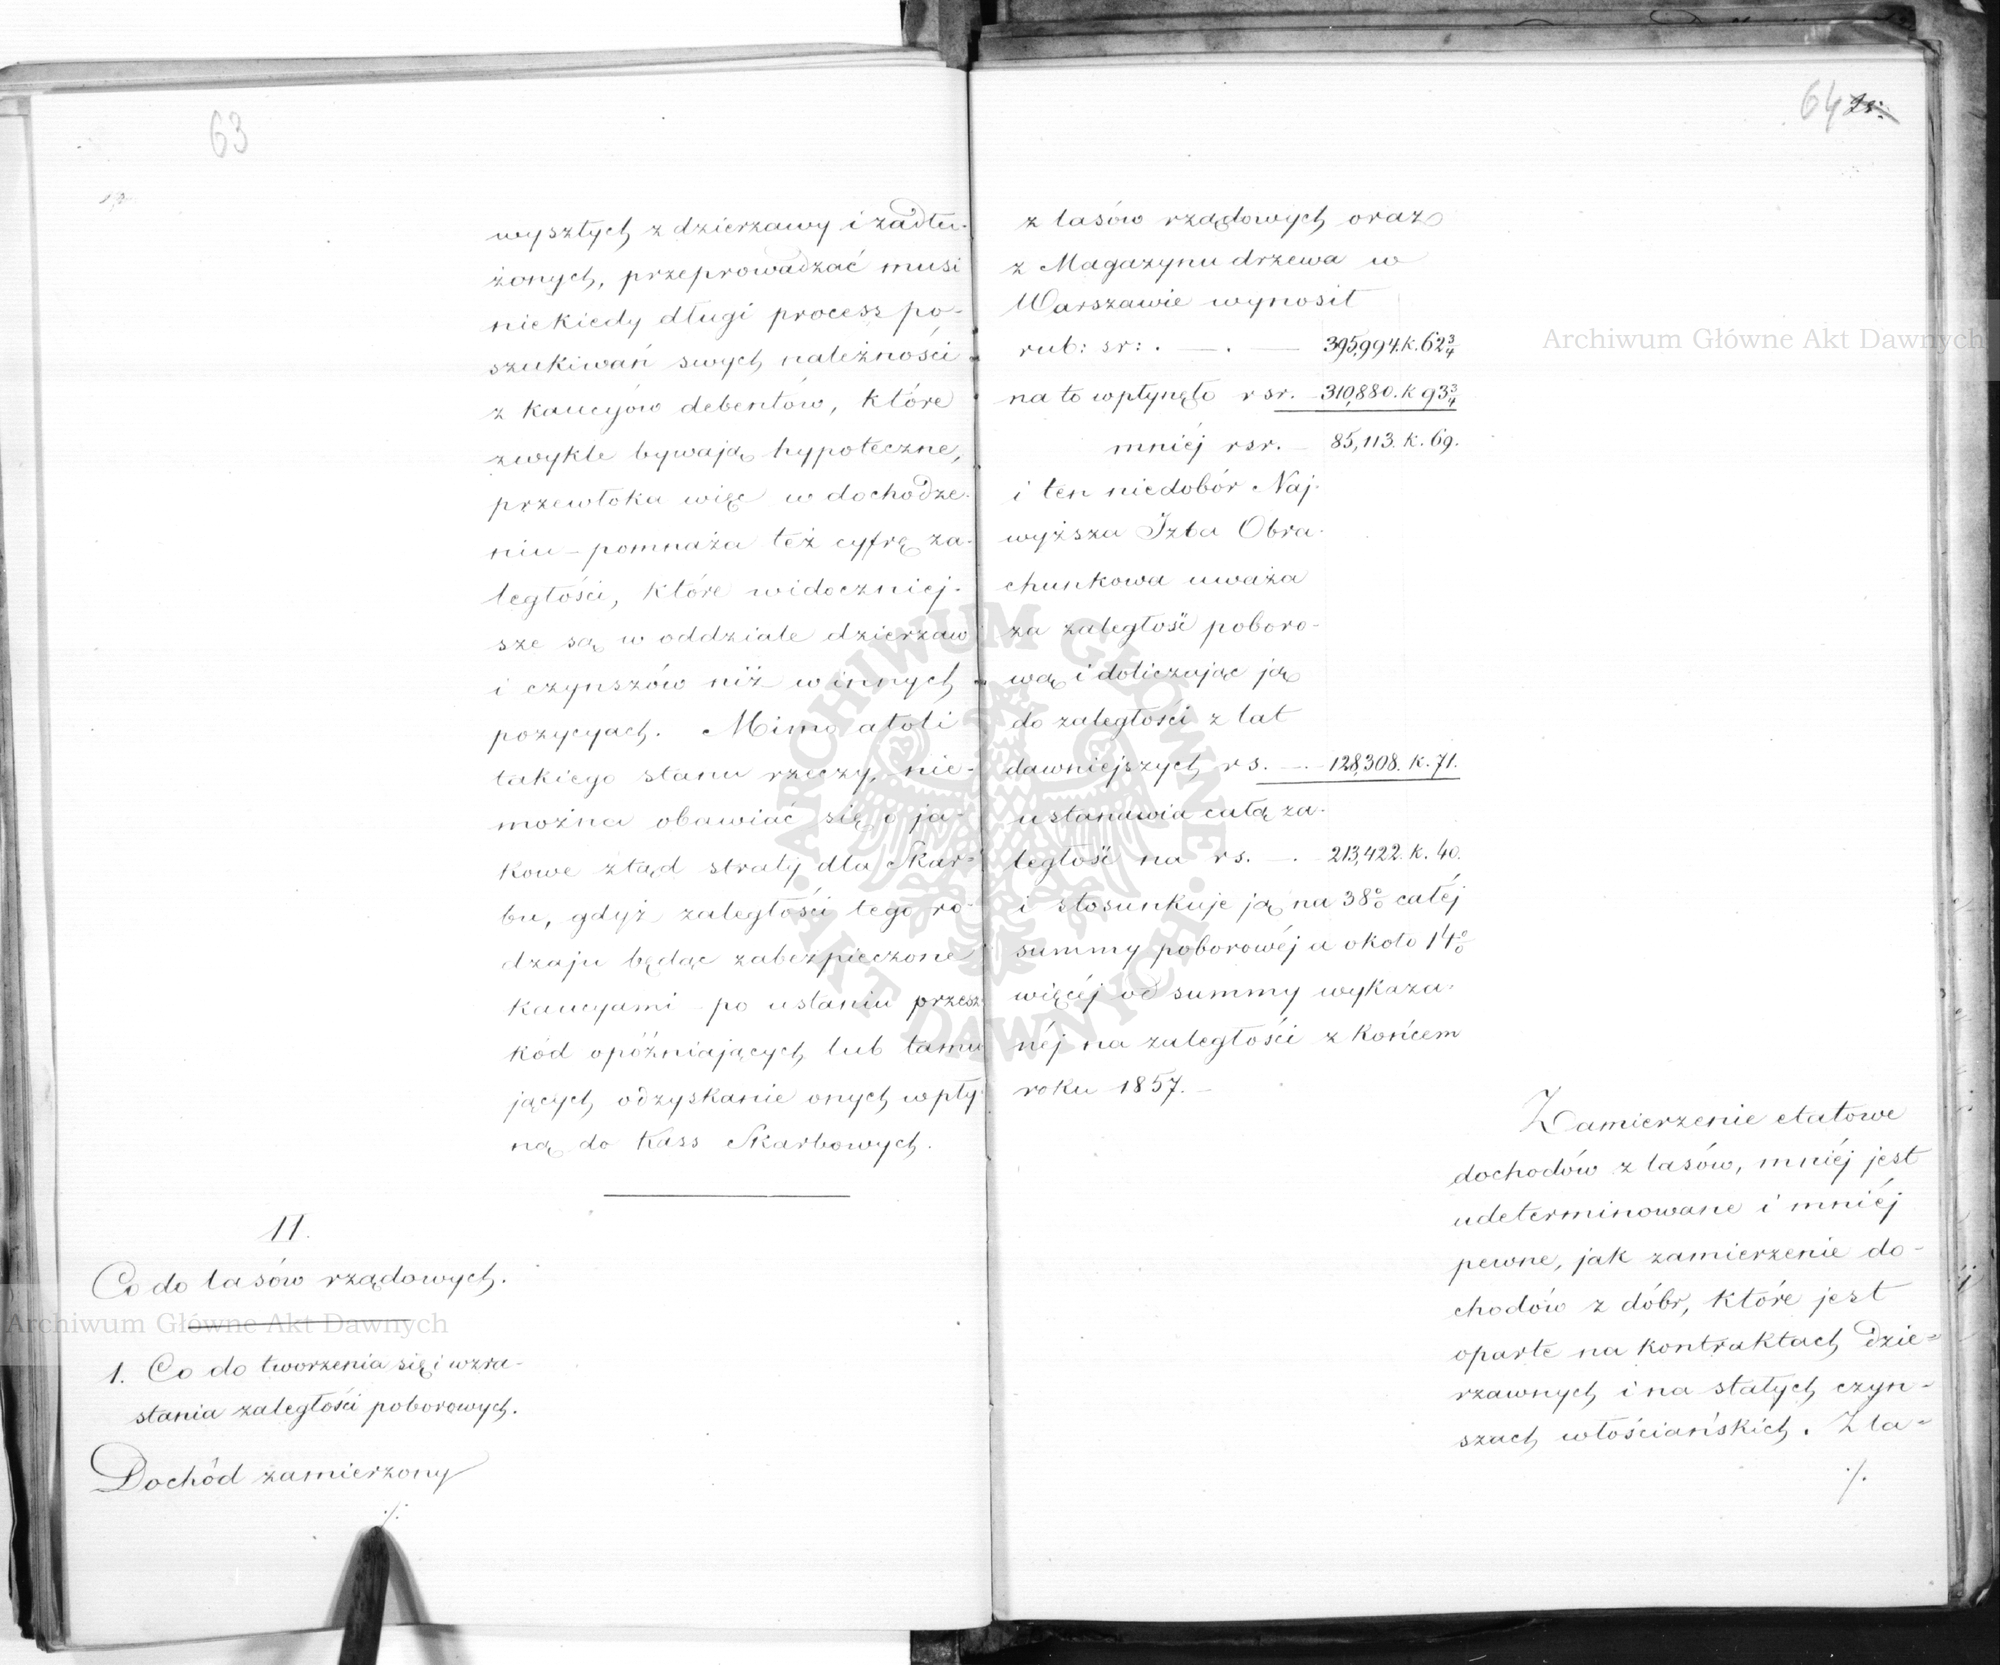 63
wyszłych z dzierzawy i zadłu-
żonych, przeprowadzać musi
niekiedy długi process po-
szukiwań swych należności
z kaucyów debentów, które
zwykle bywają hypoteczne,
przewłoka więc w dochodze-
niu – pomnaża też cyfrę za-
ległości, które widoczniej-
sze są w oddziale dzierzaw
i czynszów niż w innych
pozycyach. Mimo atoli
takiego stanu rzeczy, nie-
można obawiać się o ja-
kowe ztąd straty dla Skar-
bu, gdyż zaległości tego ro-
dzaju będąc zabezpieczone
kaucyami – po ustaniu przesz
kód opóźniających lub tamu
jących odzyskanie onych wpły-
ną do Kass Skarbowych.
II.
Co do lasów rządowych.
1. Co do tworzenia się i wzra-
stania zaległości poborowych.
Dochód zamierzony
./.
64
z lasów rządowych oraz
z Magazynu drzewa w
Warszawie wynosił
rub: sr: . — . — 395,994. k. 62 3/4
na to wpłynęło rsr. 310,880. k 93 3/4
mniéj rsr. – 85,113. k. 69.
i ten niedobór Naj-
wyższa Izba Obra-
chunkowa uważa
za zaległość poboro-
wą i doliczając ją
do zaległości z lat
dawniejszych rs. — . — 128,308. k. 71.
ustanawia całą za-
ległość na rs. — . 213,422. k. 40.
i stosunkuje ją na 38% całéj
summy poborowéj a około 14%
więcéj od summy wykaza-
néj na zaległości z końcem
roku 1857. –
Zamierzenie etatowe
dochodów z lasów, mniéj jest
udeterminowane i mniéj
pewne, jak zamierzenie do-
chodów z dóbr, które jest
oparte na kontraktach dzie-
rzawnych i na stałych czyn-
szach włościańskich. Z la-
./.
Archiwum Główne Akt Dawnych
Archiwum Główne Akt Dawnych
ARCHIWUM GŁÓWNE AKT DAWNYCH